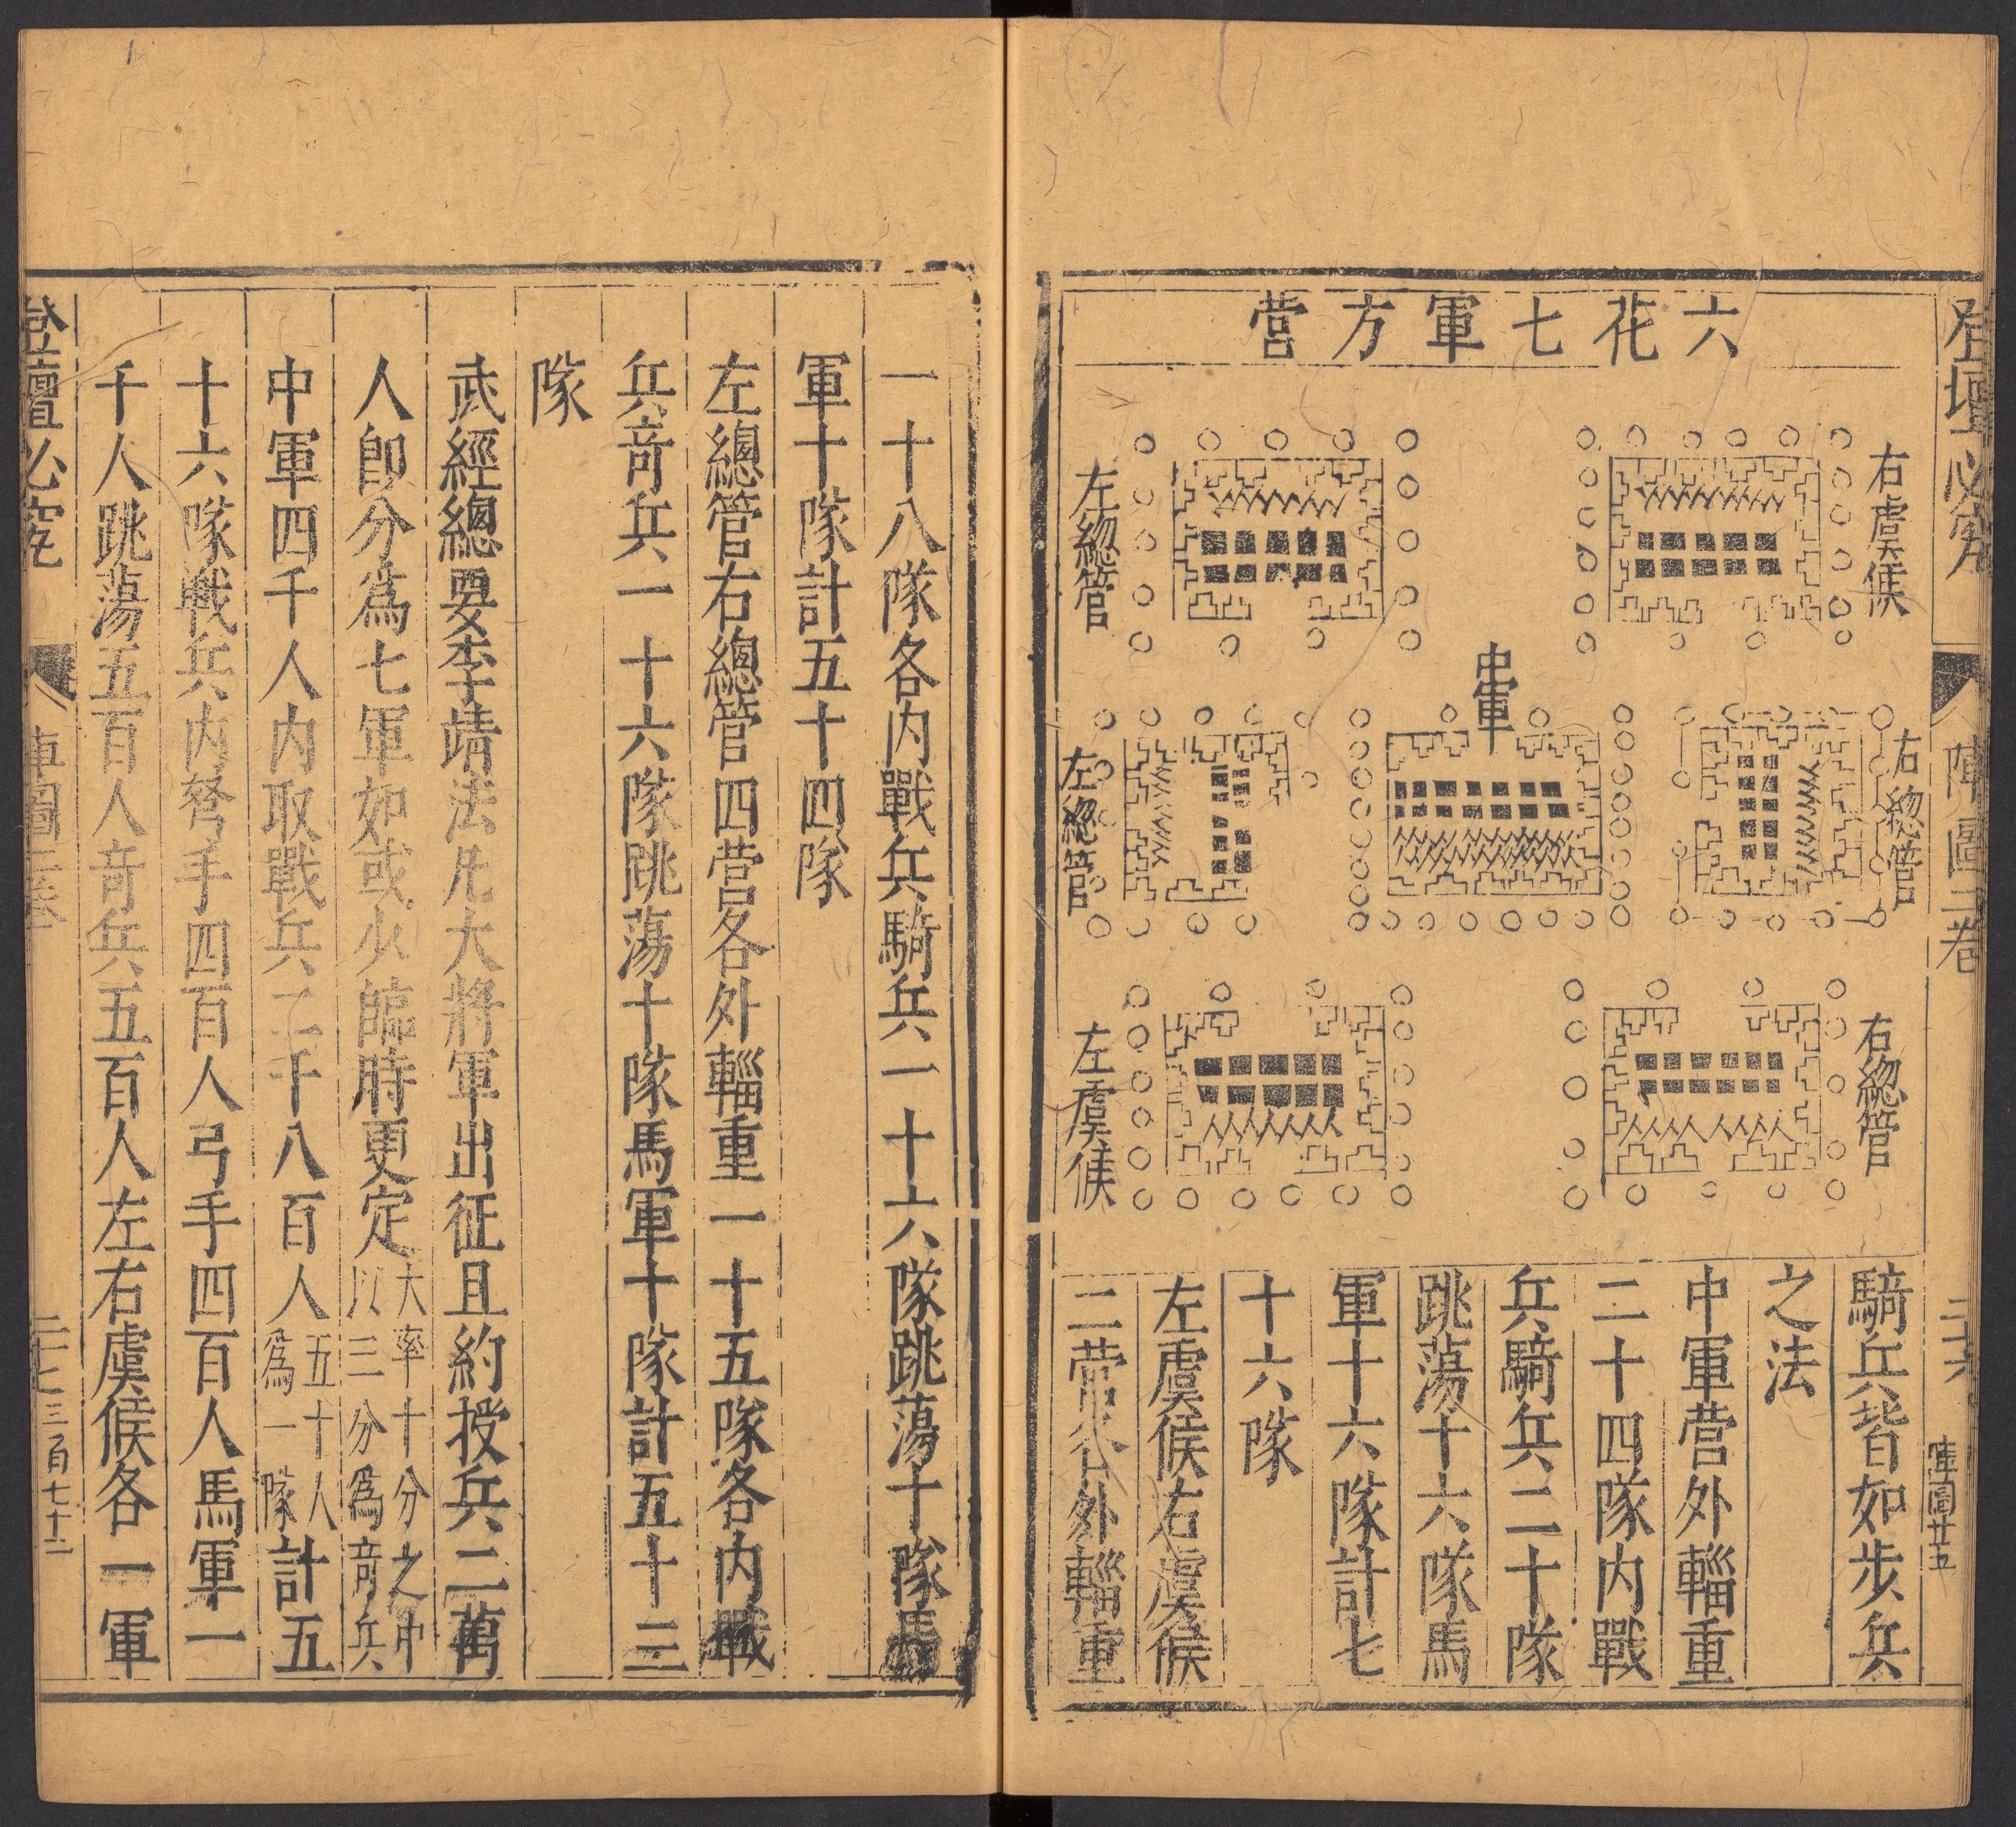 登壇必究
陣圖二卷
二十六
陣圖廿五
六花七軍方營
右虞候
左總管
中軍
右總管
左總管
右總管
左虞候
騎兵皆如步兵
之法
中軍營外輜重
二十四隊內戰
兵騎兵二十隊
跳蕩十六隊馬
軍十六隊計七
十六隊
左虞候右虞候
二營各外輜重
一十八隊各內戰兵騎兵一十六隊跳蕩十隊馬
軍十隊計五十四隊
左總管右總管四營各外輜重一十五隊各內戰
兵竒兵一十六隊跳蕩十隊馬軍十隊計五十三
隊
武經總要李靖法凡大將軍出征且約授兵二萬
人卽分為七軍如或少臨時更定大率十分之中
以三分爲竒兵
中軍四千人內取戰兵二千八百人五十人
爲一隊計五
十六隊戰兵內弩手四百人弓手四百人馬軍一
千人跳蕩五百人竒兵五百人左右虞候各一軍
登壇必究
二十七
三百七十二